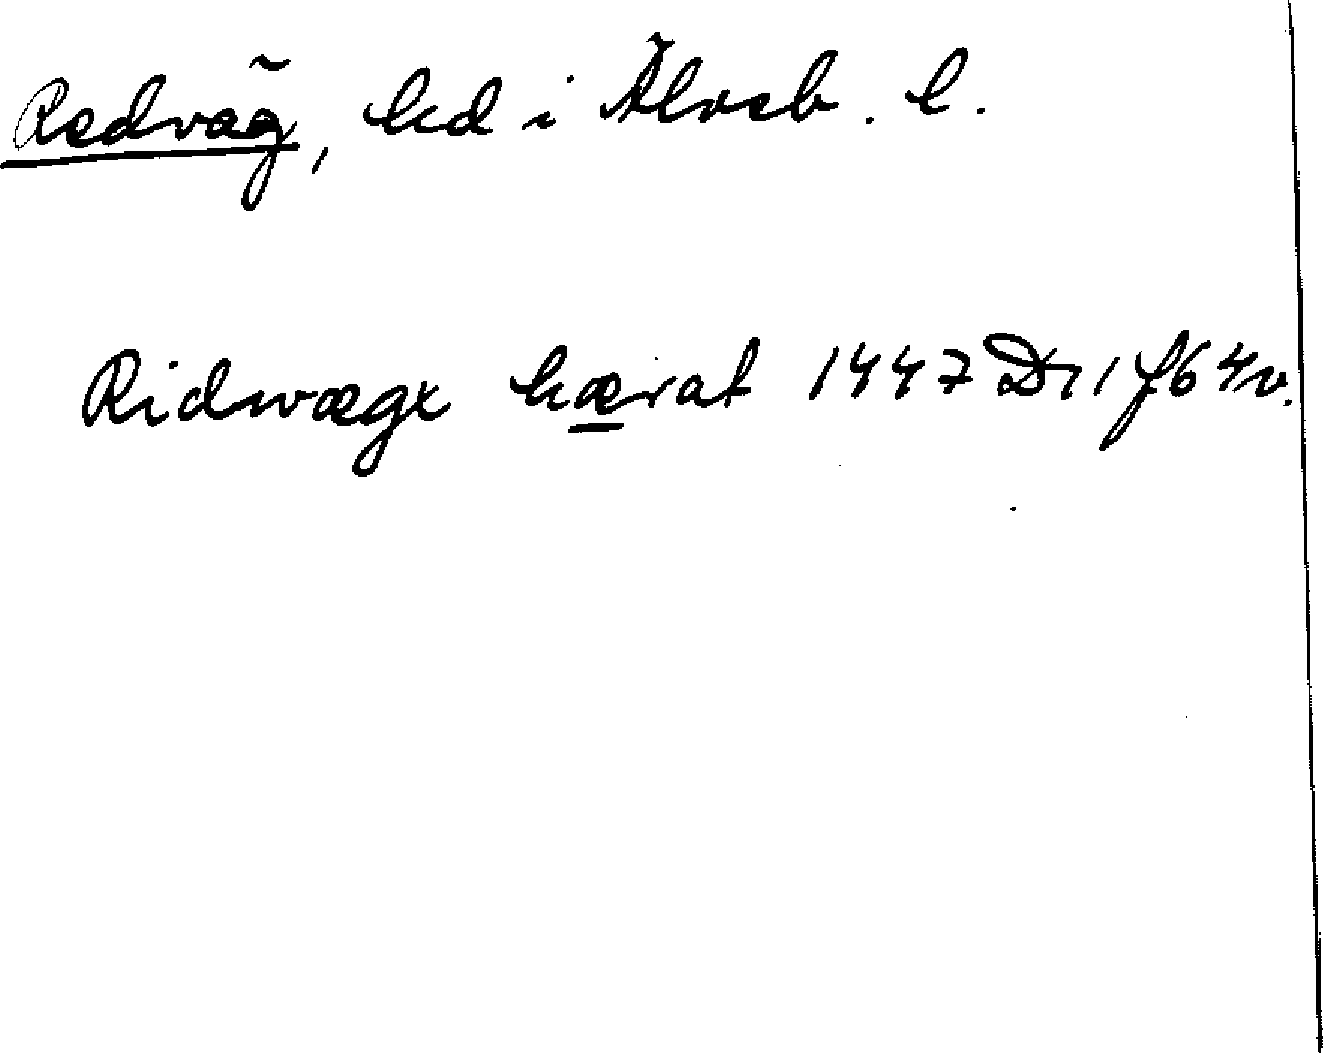 Redväg, hd i Älvsb. l.
Ridwægx hærat 1447 D11 f64v.